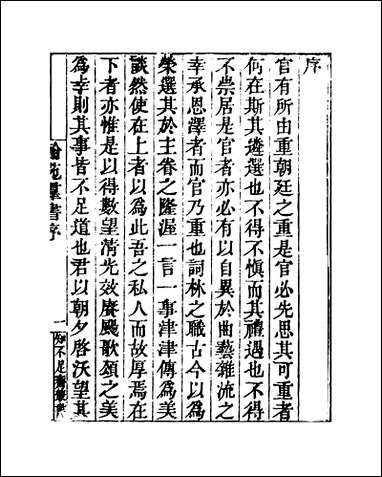 序
官有所由重朝廷之重是官必先思其可重者
何在斯其遴選也不得不慎而其禮遇也不得
不崇居是官者亦必有以自異於曲藝雜流之
幸承恩澤者而官乃重也詞林之職古今以為
榮選其於主眷之隆渥一言一事津津傳為美
談然使在上者以為此吾之私人而故厚焉在
下者亦惟是以得數望清光效賡颺歌頌之美
為幸則其事皆不足道也君以朝夕啓沃望其
翰苑羣書序
一
知不足齋叢書